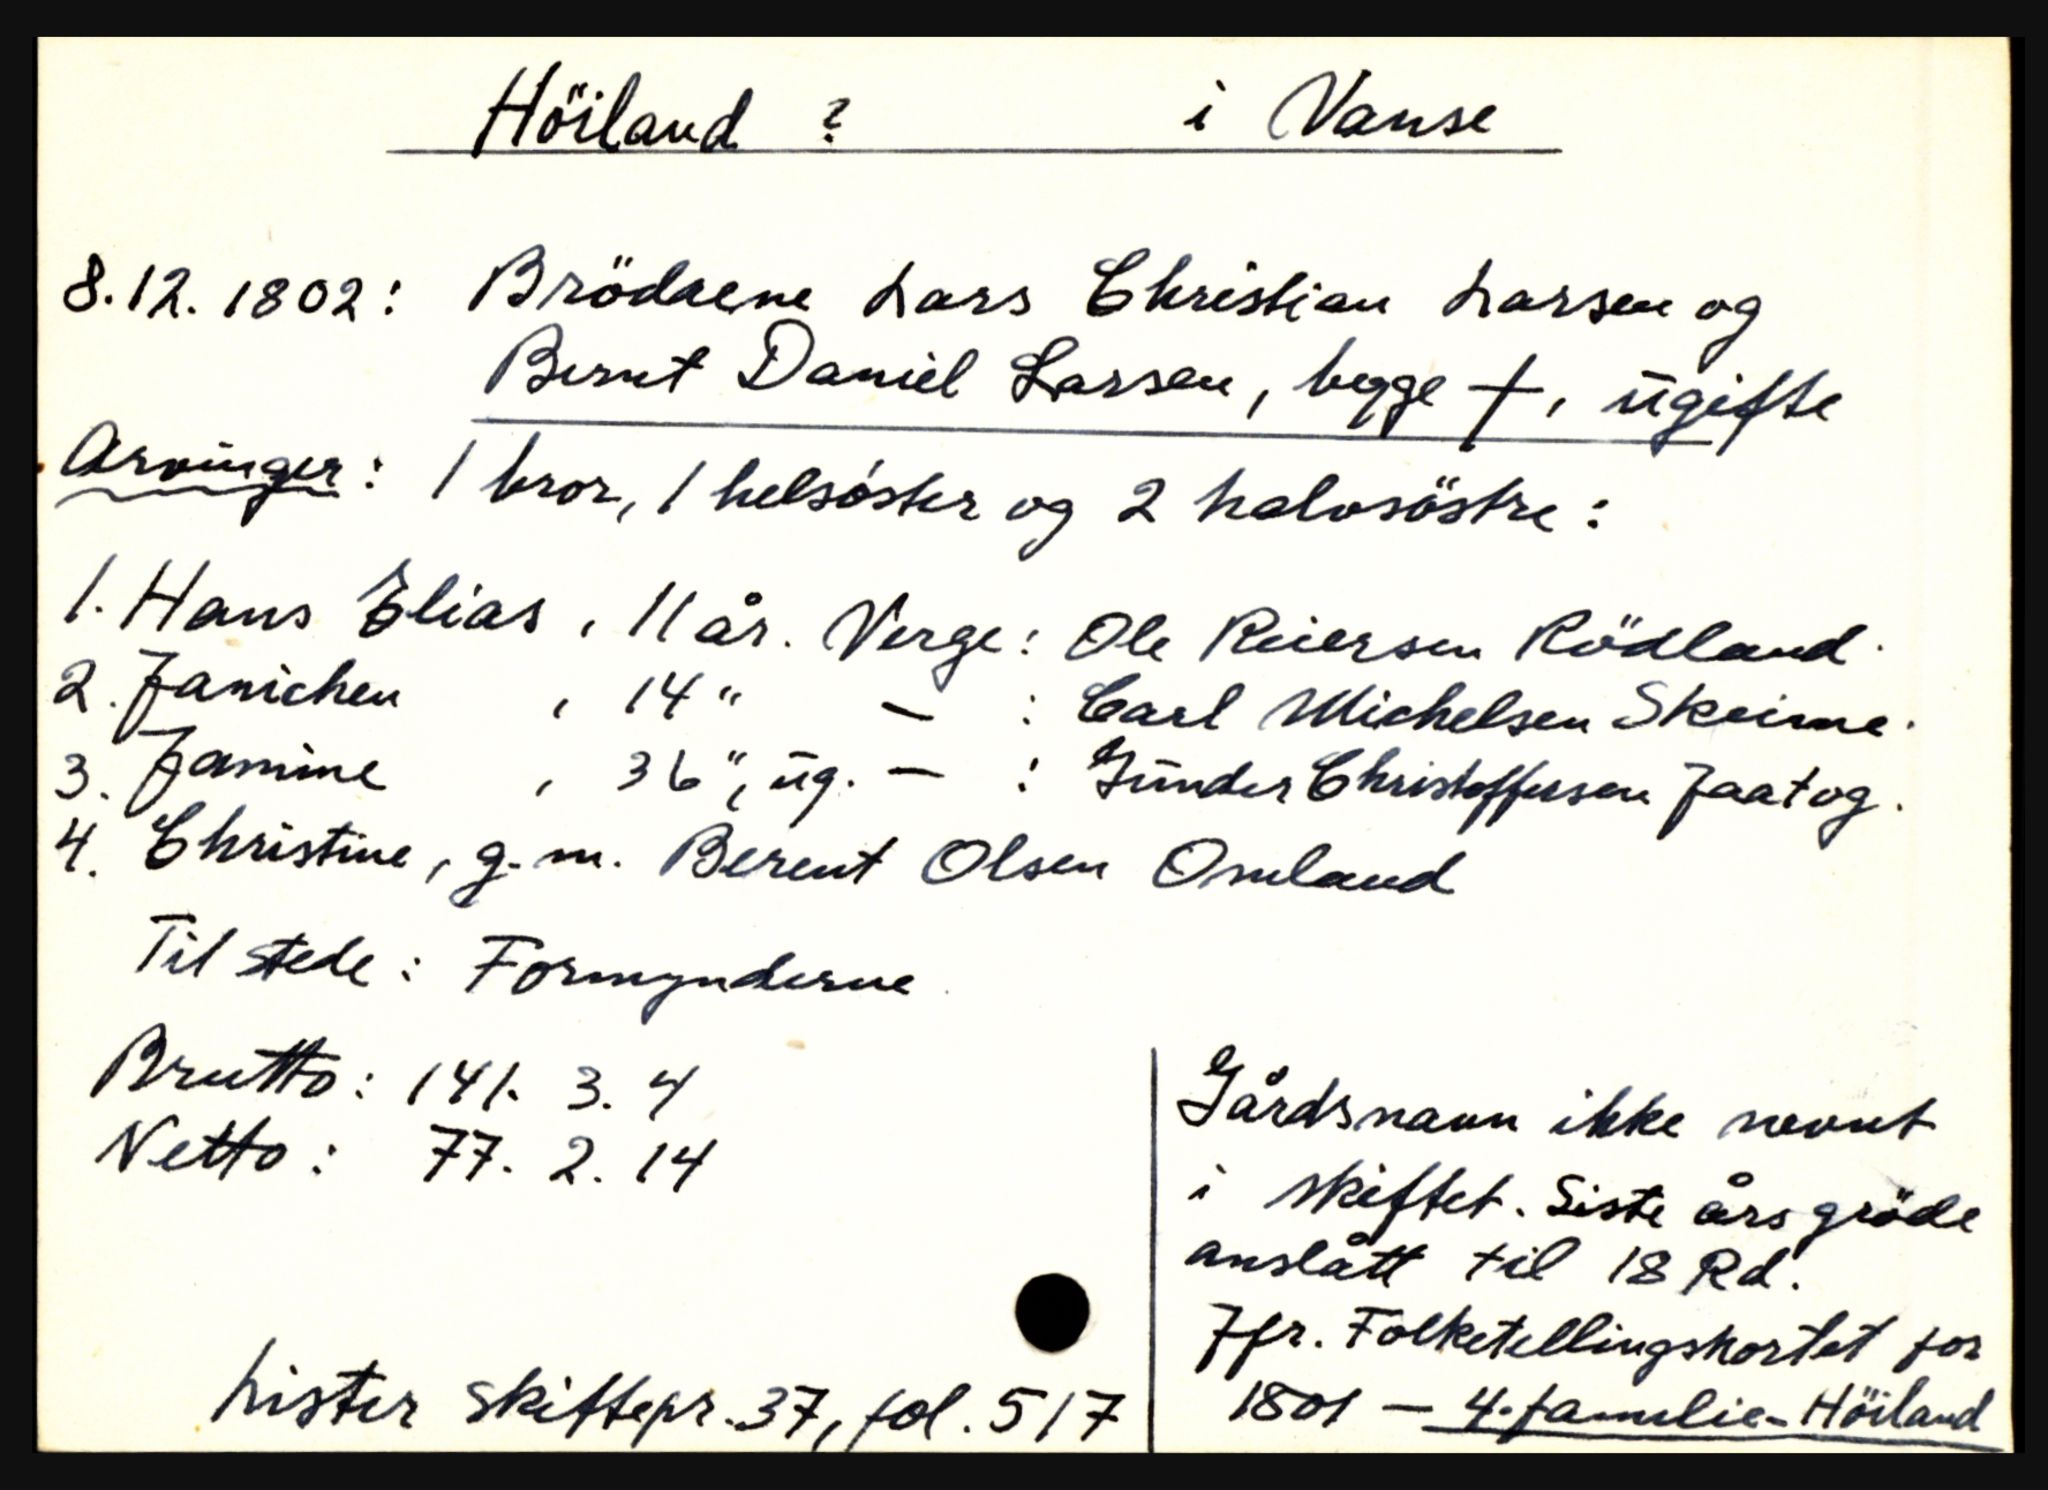 Höiland ? i Vanse
8.12.1802: Brödrene Lars Christian Larsen og
Bernt Daniel Larsen, begge †, ugifte
Arvinger: 1 bror, 1 helsöster og 2 halvsöstre:
1. Hans Elias, 11 år. Verge: Ole Reiersen Rödland.
2. Janichen , 14 " — : Carl Michelsen Skeime.
3. Jamine , 36 ", ug. — : Gunder Christoffersen Jaatog.
4. Christine, g.m. Berent Olsen Omland
Til stede: Formynderne.
Brutto: 141. 3. 4
Netto: 77. 2. 14
Gårdsnavn ikke nevnt
i skiftet. Siste års gröde
anslått til 18 Rd.
Jfr. Folketellingskortet for
1801 — 4. familie - Höiland
Lister skiftepr. 37, fol. 517